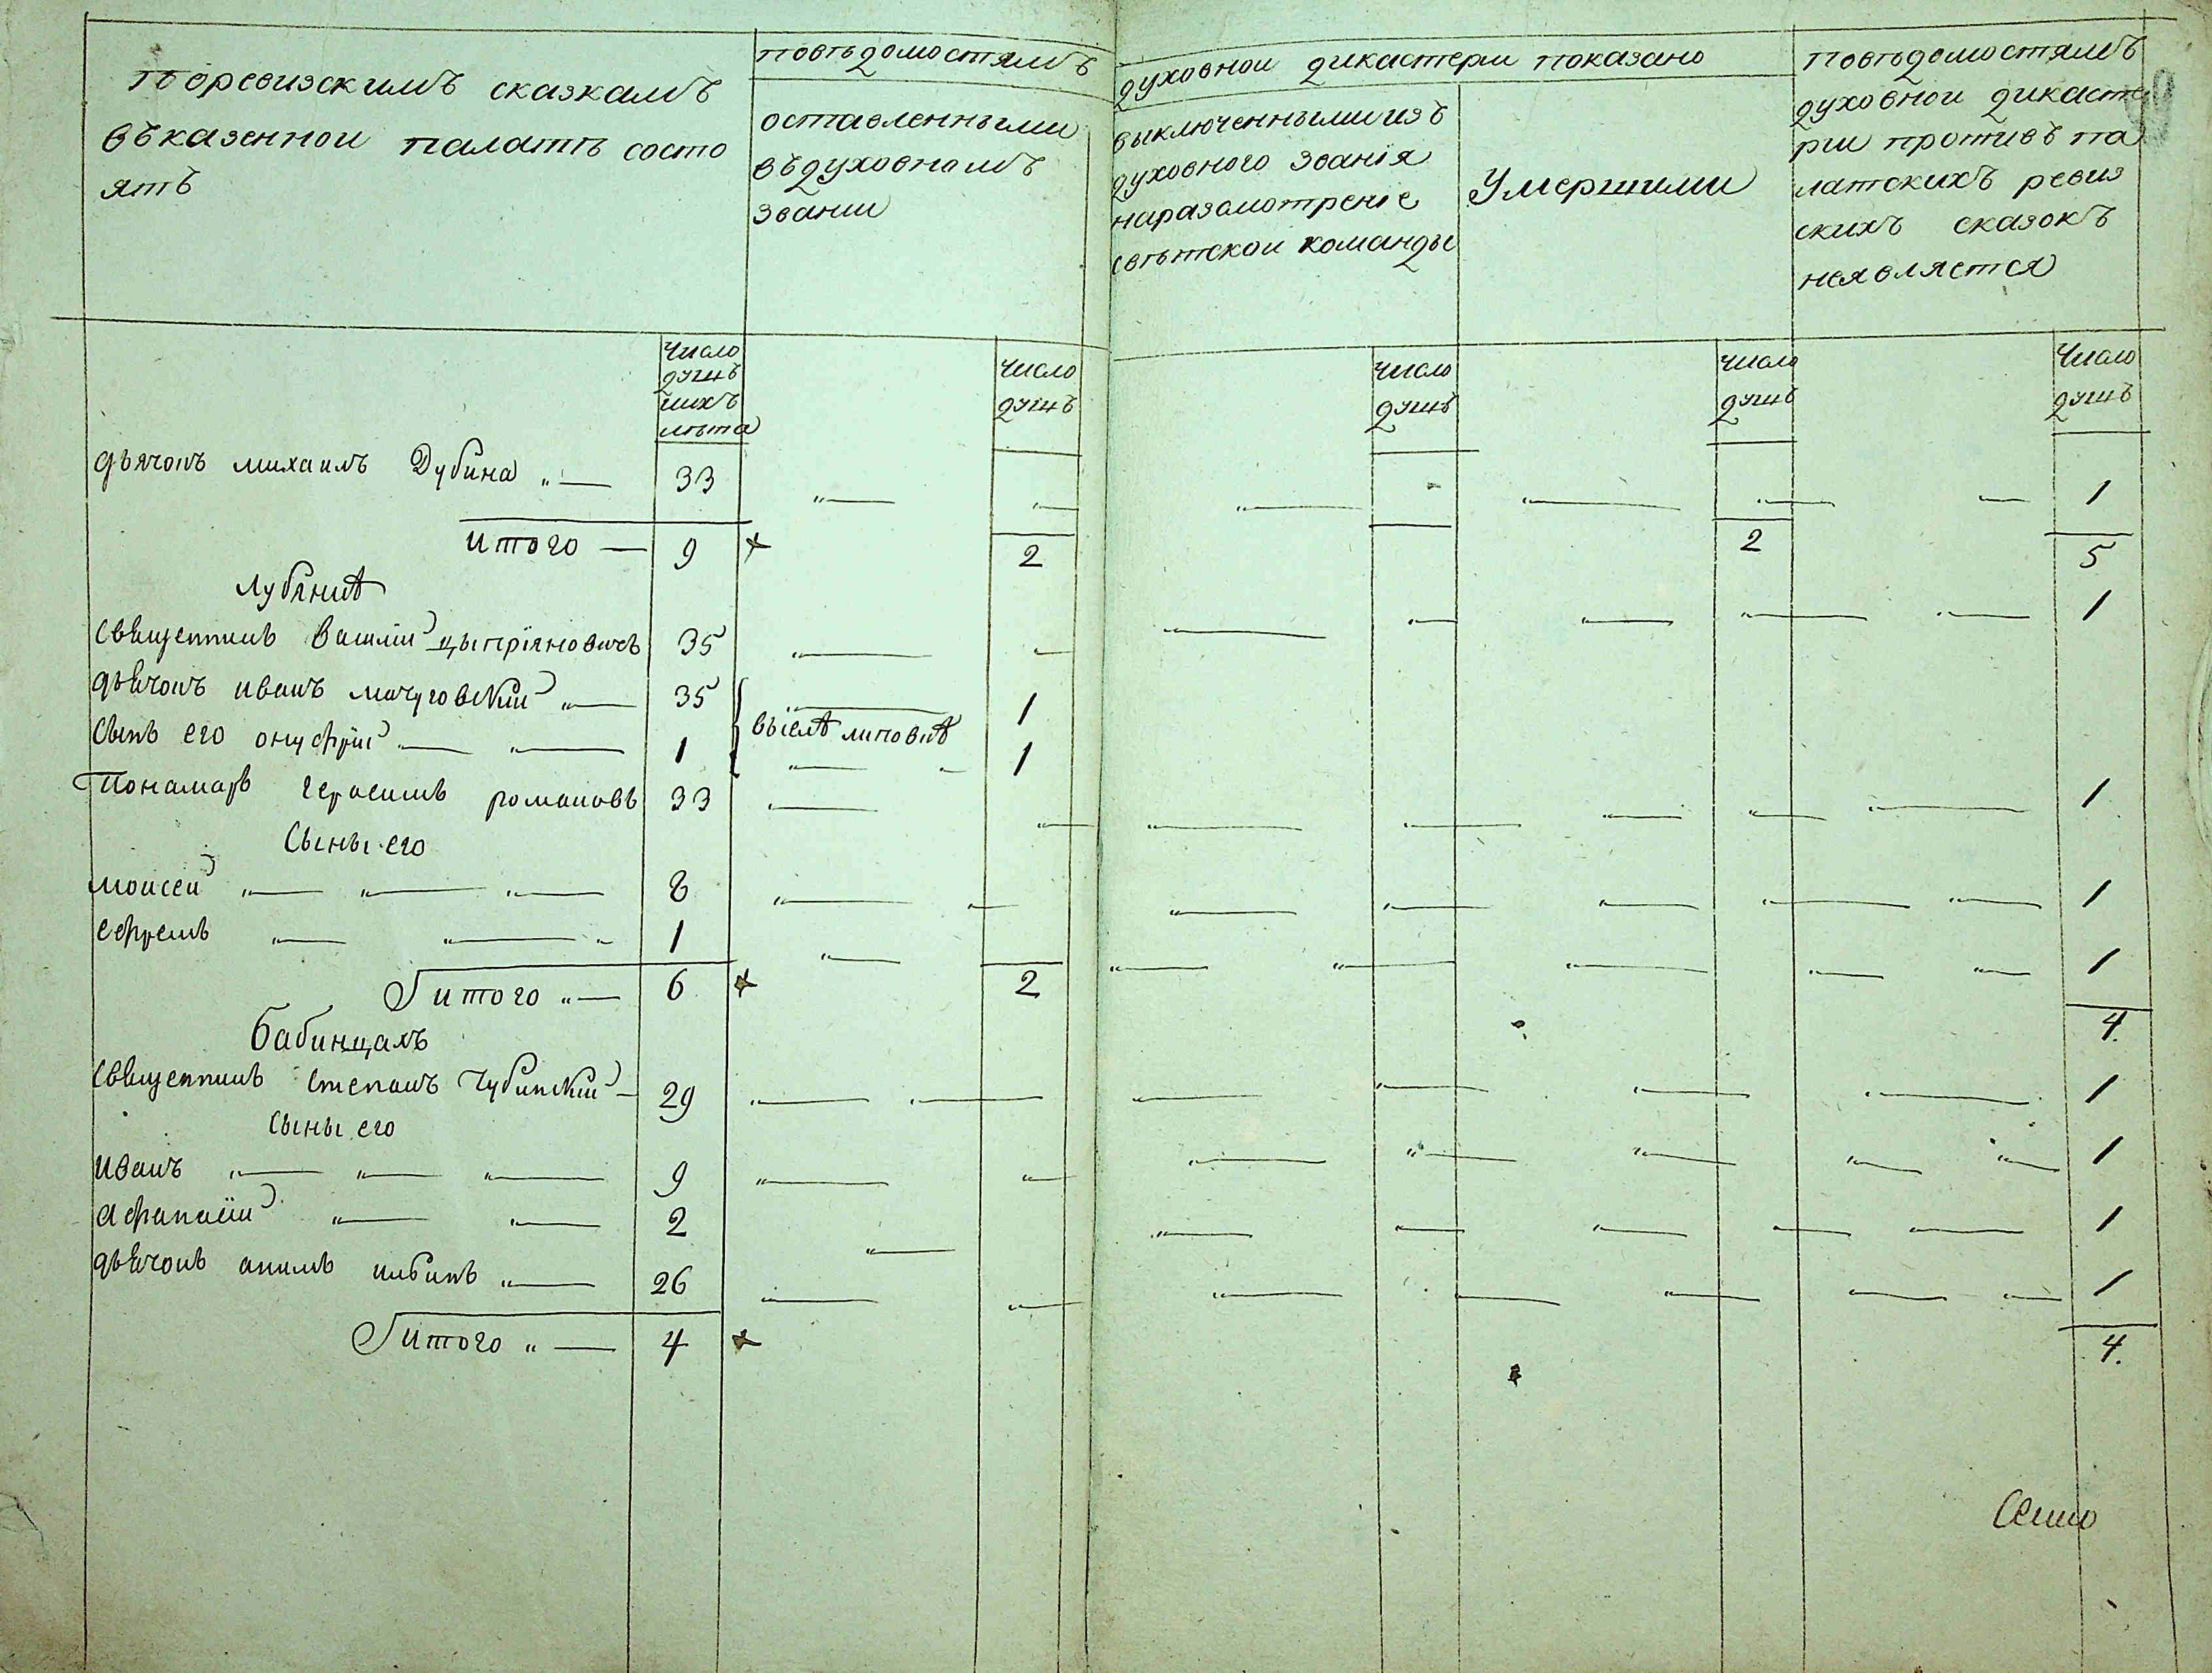 поревизскимъ сказкамъ
въказенной палатѣ состо
ятъ
повѣдомостямъ
духовной дикастери показано
оставленными
въдуховномъ
звании
выключенными изъ
духовного званія
наразсмотреніе
свѣтской команды
Умершими
повѣдомостямъ
духовной дикасте
рии противъ па
латскихъ ревиз
скихъ сказокъ
неявляется
Число душъ ихъ лѣта
Число душъ
Число душъ
Число душъ
Число душъ
дьячокъ михаилъ Дубина „— 33 „— „— „— „— „— — 1
итого — 9 2 2 5
Лубянкѣ
священникъ Василій цыпріяновичъ 35 „— „— „— „— „— „— „— 1
дьячокъ иванъ мачуговский „— 35 1
въселѣ липовкѣ
сынъ его онуфрій „— „— 1 „— „ 1
Пономарь герасимъ романовъ 33 „— „— „— „— „— „— „— 1
Сыны его
моисей „— „— „— 8 „— „— „— „— „— „— „— 1
ефремъ „— „— „ 1 „— „— „— „— „— „— 1
итого „— 6 2 4.
Бабинцахъ
священникъ степанъ Чубинский — 29 „— „— „— „— „— „— 1
сыны его
иванъ „— „— „— 9 „— „— „— „— „— „— „— 1
афанасій „— „— 2 „— „— „— „— „— „— 1
дьячокъ акимъ ильинъ „— 26 „— „— „— „— „— „— „— 1
итого „— 4 4.